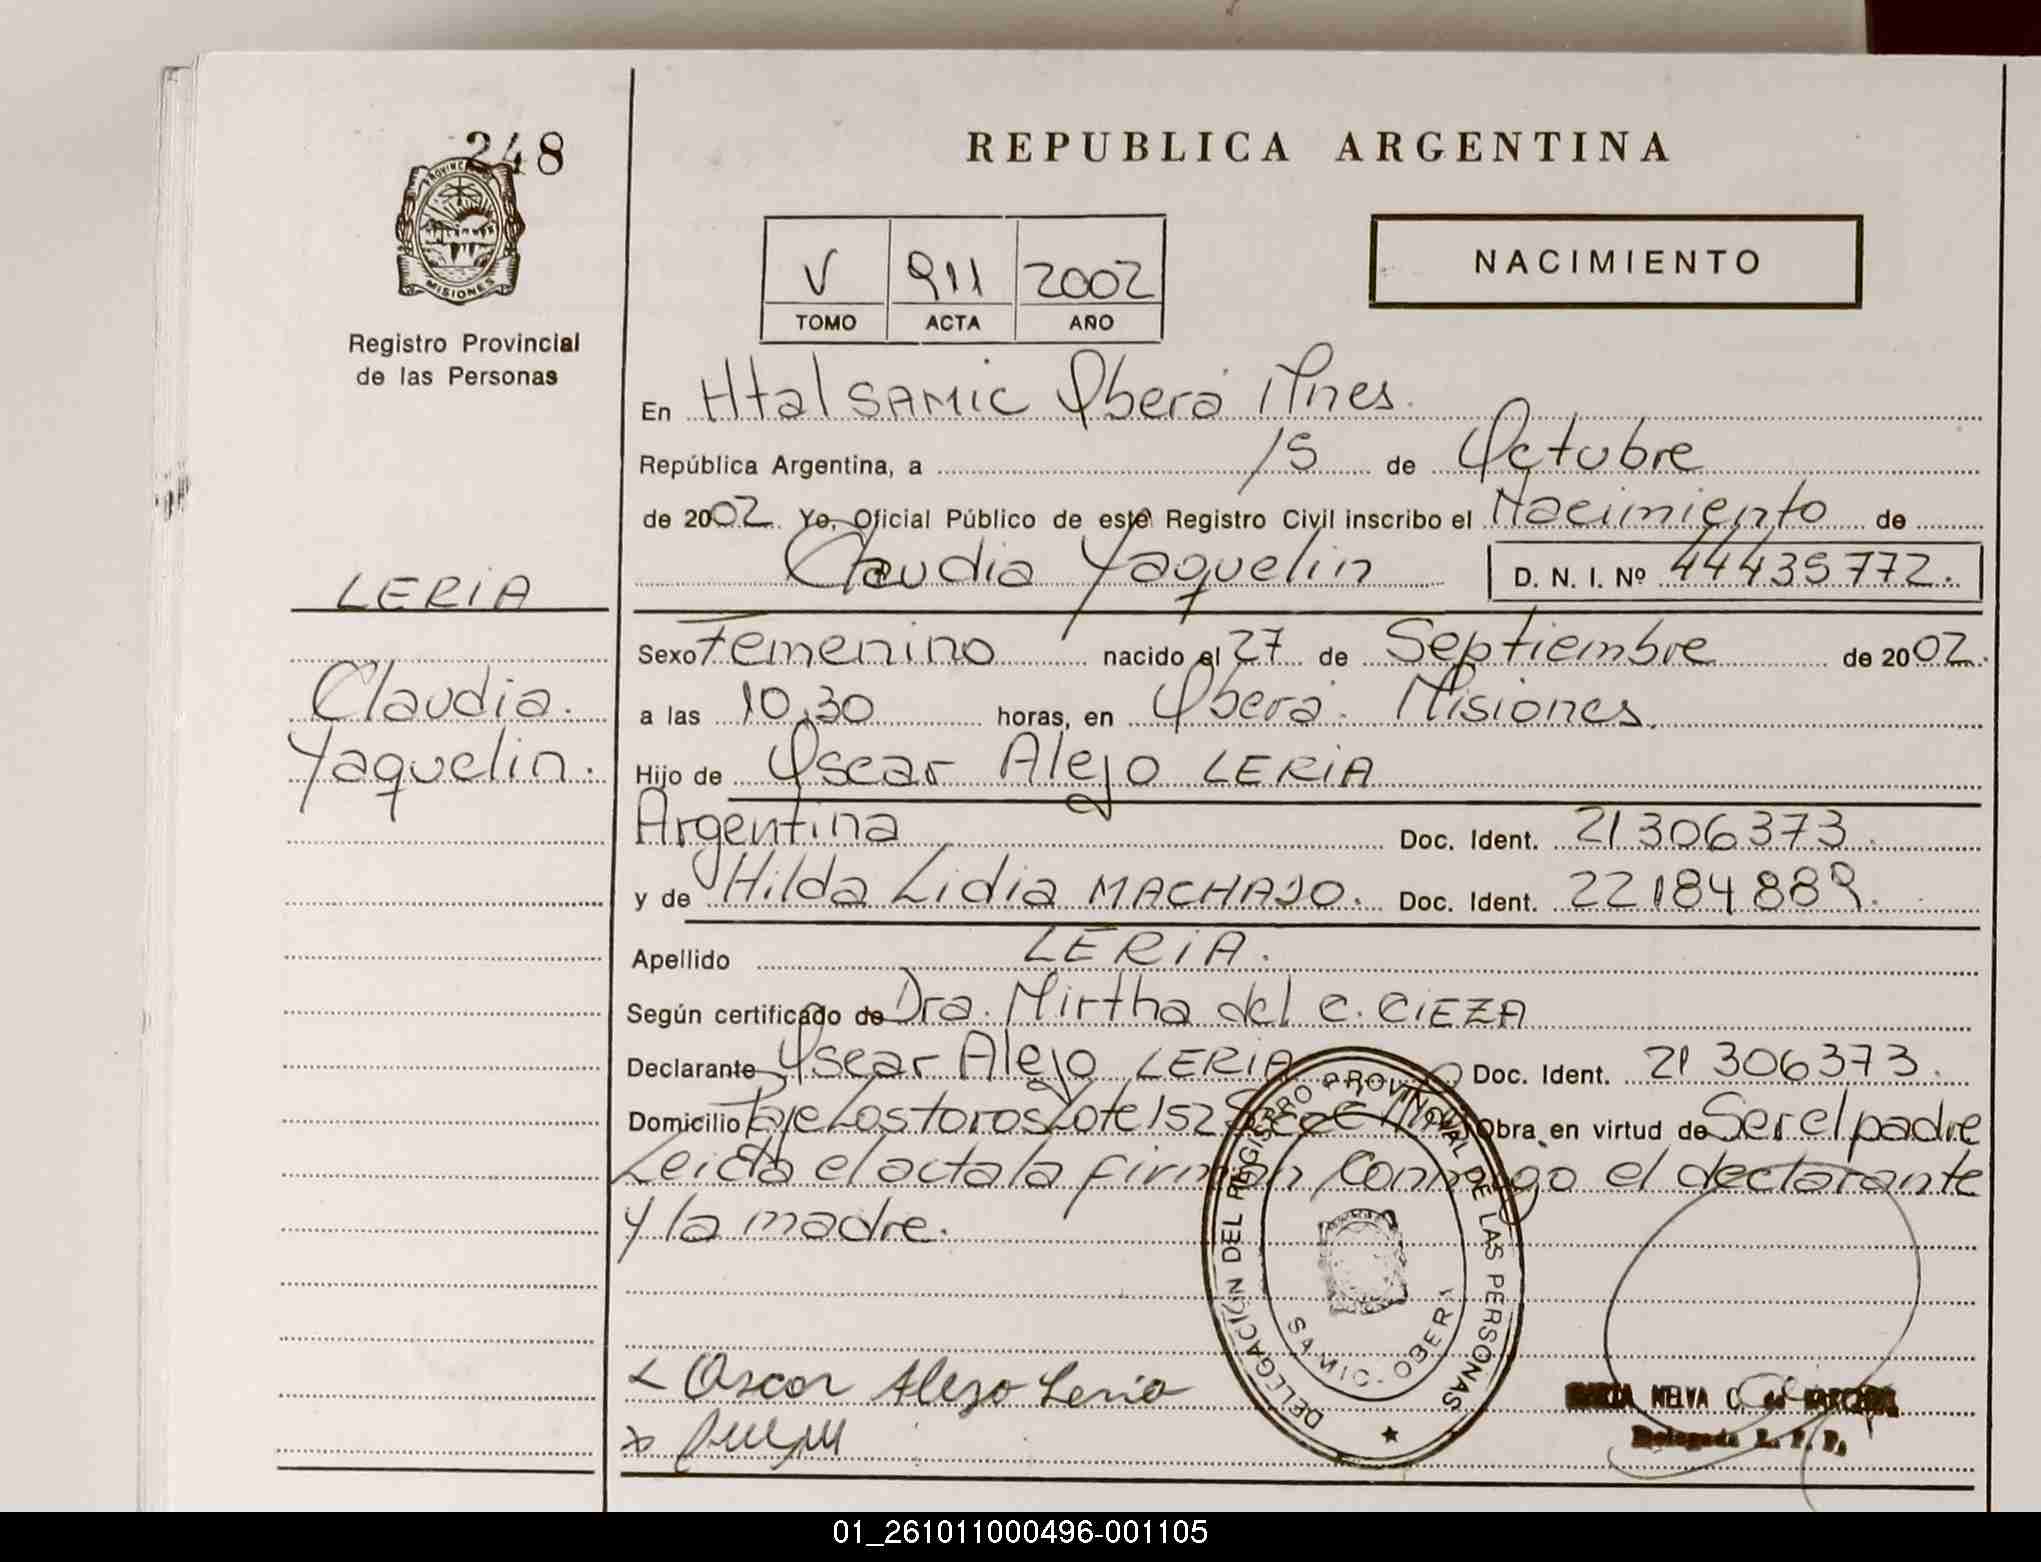 248
PROVINCIA
MISIONES
Registro Provincial
de las Personas
LERIA
Claudia
Yaquelin.
REPUBLICA ARGENTINA
V 911 2002
TOMO ACTA AÑO
NACIMIENTO
En Htal SAMIC Oberá Mnes.
República Argentina, a 15 de Octubre
de 2002 Yo, Oficial Público de este Registro Civil inscribo el Nacimiento de
Claudia Yaquelin D. N. I. Nº 44435772.
Sexo Femenino nacido el 27 de Septiembre de 2002.
a las 10,30 horas, en Oberá. Misiones.
Hijo de Oscar Alejo LERIA
Argentina Doc. Ident. 21306373.
y de Hilda Lidia MACHADO. Doc. Ident. 22184889.
Apellido LERIA.
Según certificado de Dra. Mirtha del C. CIEZA
Declarante Oscar Alejo LERIA Doc. Ident. 21 306373.
Domicilio Pje Los toros Lote 152 Obra en virtud de Ser el padre
Leida el acta la firman conmigo el declarante
y la madre.
DELEGACIÓN DEL REGISTRO PROVINCIAL DE LAS PERSONAS
SAMIC - OBERA
Oscar Alejo Leria
MELVA C. de
Delegada R. P. P.
01_261011000496-001105